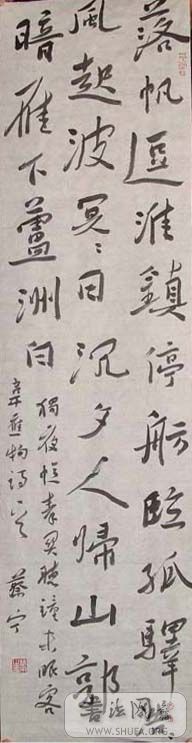 落帆逗淮鎮停舫臨孤驛
風起波冥〻日沉夕人歸山郭
暗雁下蘆洲白
獨夜憶秦關聽鐘未眠客
韋應物詩
蔡宁
书法网